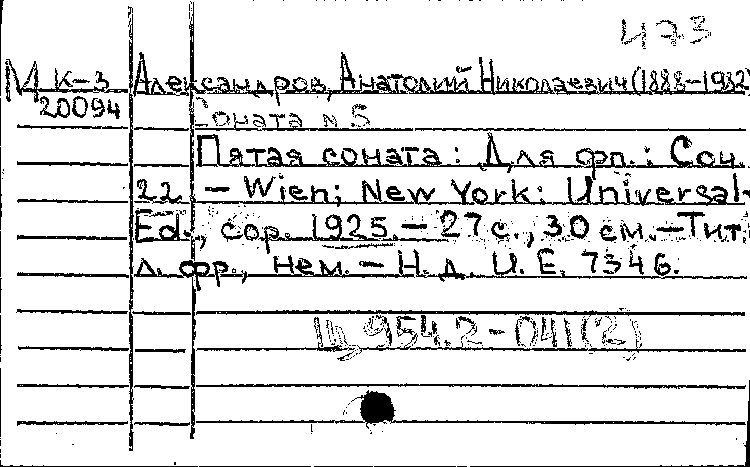 473
М К-3 Александров, Анатолий Николаевич (1888-1982)
20094
Соната № 5
Пятая соната : Для фп. : Соч.
22. - Wien; New York: Universal-
Ed., cop. 1925. - 27 с., 30 см. - Тит.
л. фр., нем. - Н. д. U. E. 7346.
Щ 954.2-041(2)